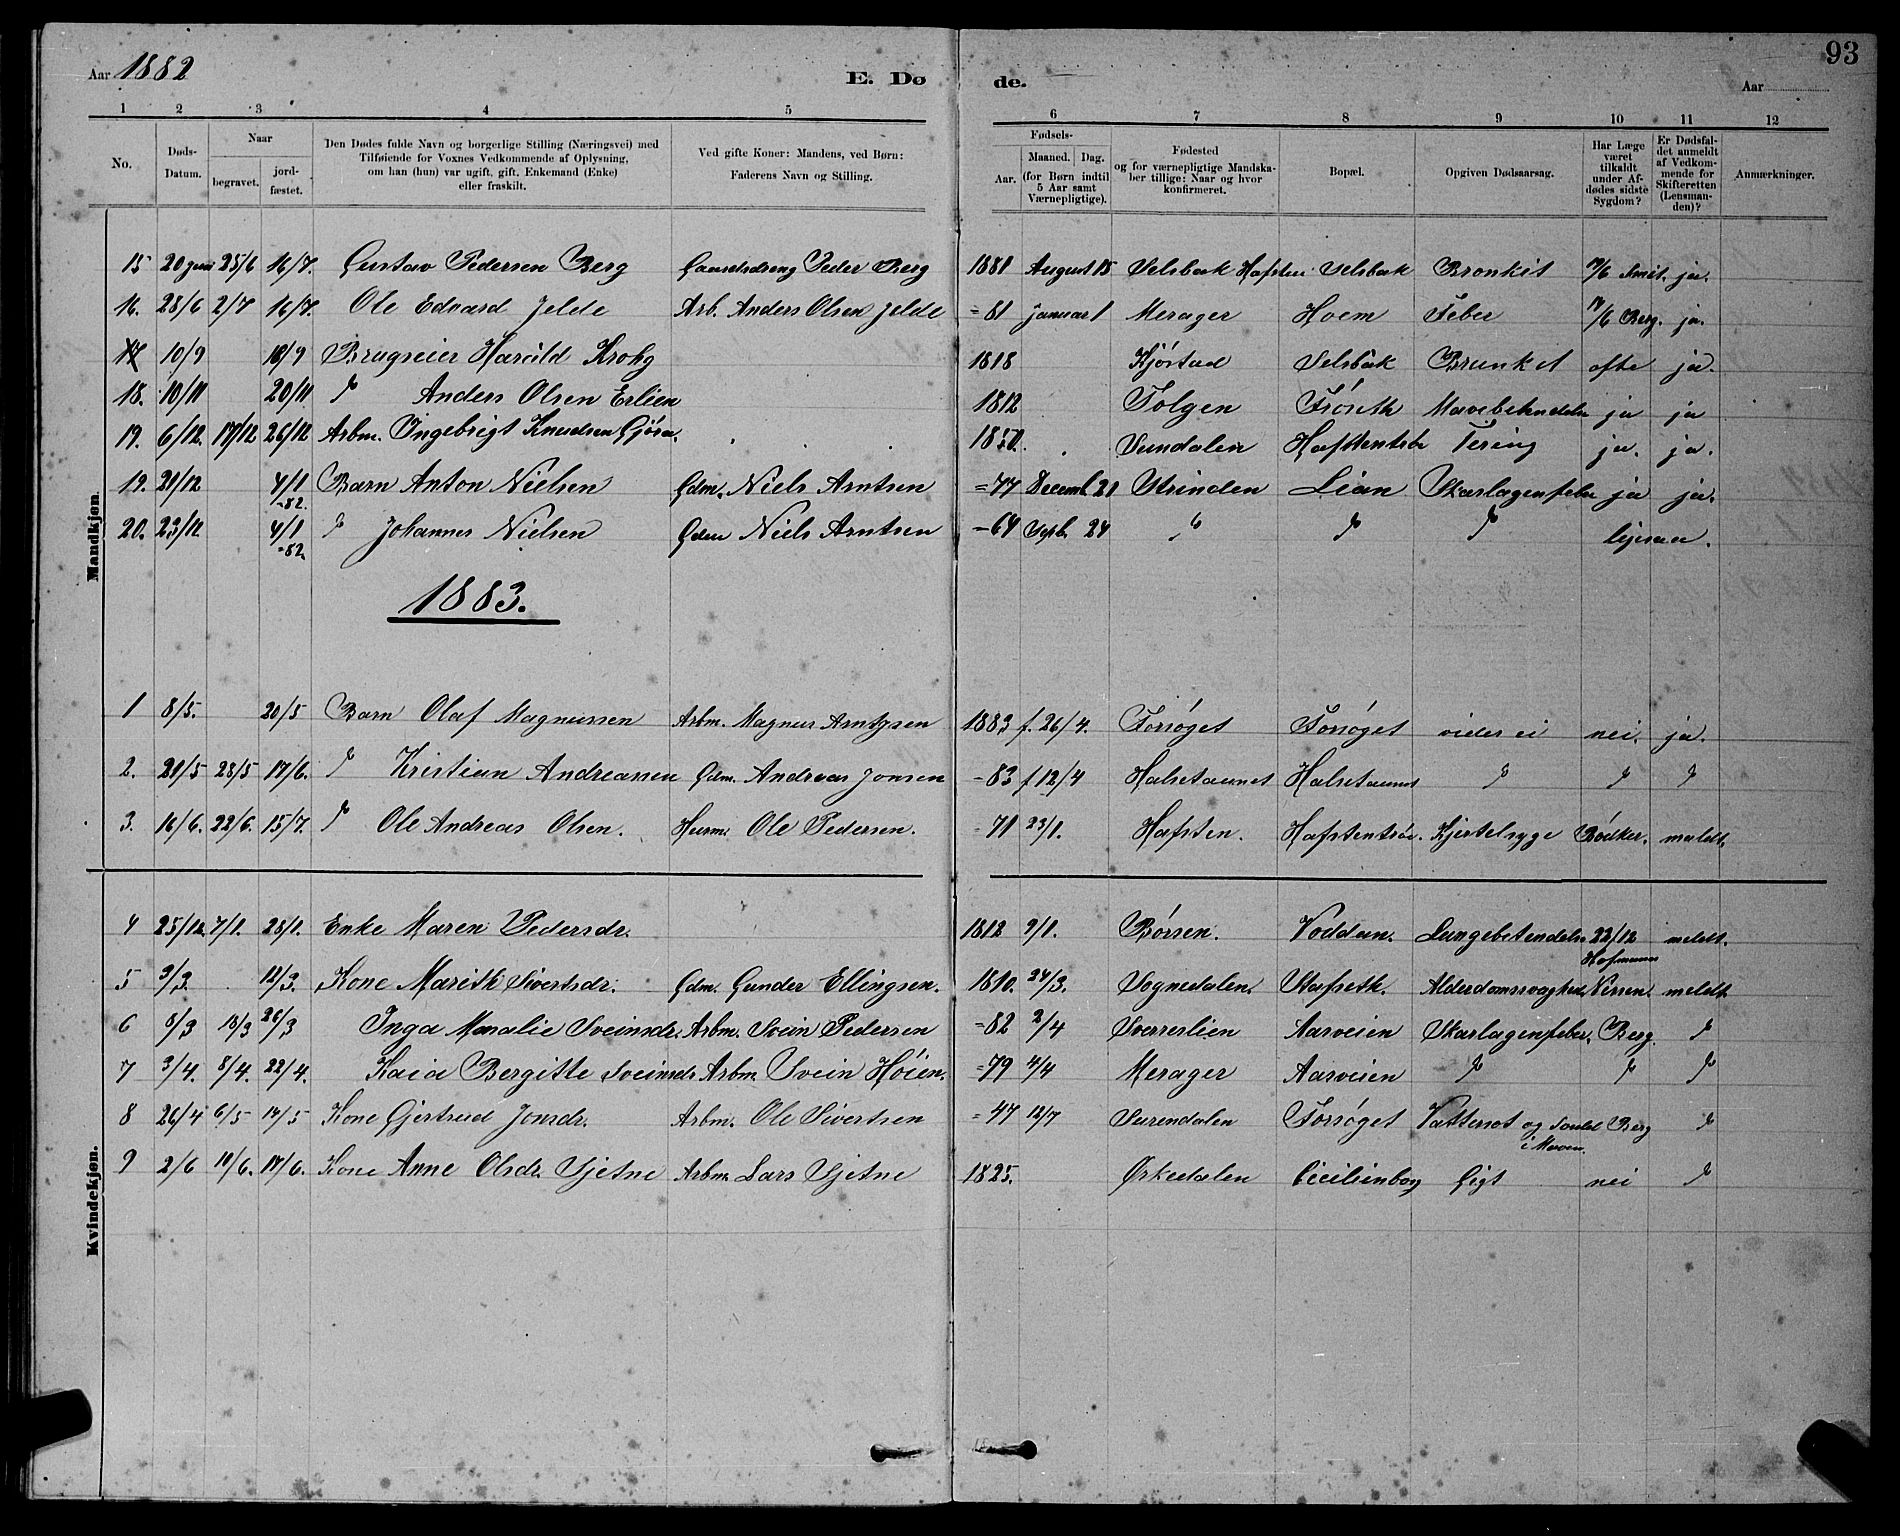 93
Aar 1882 E. Dø de. Aar
1 2 3 4 5 6 7 8 9 10 11 12
No. Døds-Datum. Naar begravet. jordfæstet. Den Dødes fulde Navn og borgerlige Stilling (Næringsvei) med Tilføiende for Voxnes Vedkommende af Oplysning, om han (hun) var ugift, gift, Enkemand (Enke) eller fraskilt. Ved gifte Koner: Mandens, ved Børn: Faderens Navn og Stilling. Fødsels- Aar. Maaned. Dag. (for Børn indtil 5 Aar samt Værnepligtige). Fødested og for værnepligtige Mandskaber tillige: Naar og hvor konfirmeret. Bopæl. Opgiven Dødsaarsag. Har Læge været tilkaldt under Afdødes sidste Sygdom? Er Dødsfaldet anmeldt af Vedkommende for Skifteretten (Lensmanden)? Anmærkninger.
Mandkjøn.
15 20 juni 25/6 16/7. Gustav Pedersen Berg Gaardsdreng Peder Berg 1881 August 15 Selsbak Hafsten Selsbak Bronkit ja.
16. 28/6 2/7 16/7. Ole Edvard Jelde Arb. Anders Olsen Jelde =81 januar 1 Merager Hoem Feber Berg. ja.
17 10/9 18/9 Brugseier Harald Krohg 1818 Kjørstad Selsbak Brunkit ofte ja.
18. 10/11 20/11 " Anders Olsen Erlien 1812 Tolgen Frøseth ja ja
19. 6/12. 17/12 26/12 Arbm. Ingebrigt Knudsen Gjøra. Sundalen Tæring ja. ja.
19. 21/12 4/1 =82. Barn Anton Nielsen Gdm. Niels Arntsen =77 Decemb. 21 Strinden Lian Skarlagensfeber ja ja.
20. 23/12 4/1 =82. " Johannes Nielsen Gdm Niels Arntsen =64 Septb. 24 " " " ligesaa.
1883.
1 8/5. 20/5 Barn Olaf Magnussen Arbm. Magnus Arntzsen 1883 f. 26/4. Forsøget Forsøget vides ei nei. ja.
2. 21/5 28/5 17/6. " Kristian Andreassen Gdm. Andreas Jonsen =83 f 12/4 Halsetaunet Halsetaunet " " "
3. 16/6. 22/6. 15/7. " Ole Andreas Olsen. Husm. Ole Pedersen. =71 23/1. Hafsten. Hafstentrøe. Kjertelsyge Bödker. meldt.
Kvindekjøn.
4 25/12. 7/1. 28/1. Enke Maren Pedersdr. 1812 9/1. Børsen. Voddan. Lungebetendelse 22/12 Hofmann meldt.
5 3/3. 12/3. Kone Marith Sivertsdr. Gdm. Gunder Ellingsen. 1810. 24/3. Sognedalen. Stafseth. Alderdomssvaghed. meldt.
6 8/3 18/3 26/3 Inga Maralie Sveinsdr. Arbm. Svein Pedersen =82 2/4 Sverreslien Aasveien Skarlagensfeber. Berg. "
7 3/4. 8/4. 22/4. Kaia Bergitte Sveinsdr Arbm. Svein Høien. =79 4/4 Merager Aasveien " " "
8 26/4 6/5 14/5 Kone Gjertrud Jonsdr. Arbm. Ole Sivertsen =47 12/7 Surendalen Forsøget Vattersot og i Maven. Berg "
9 2/6 10/6. 17/6. Kone Anne Olsdr. Sjetne Arbm. Lars Sjetne 1825. Ørkedalen Cecilienborg Gigt nei "